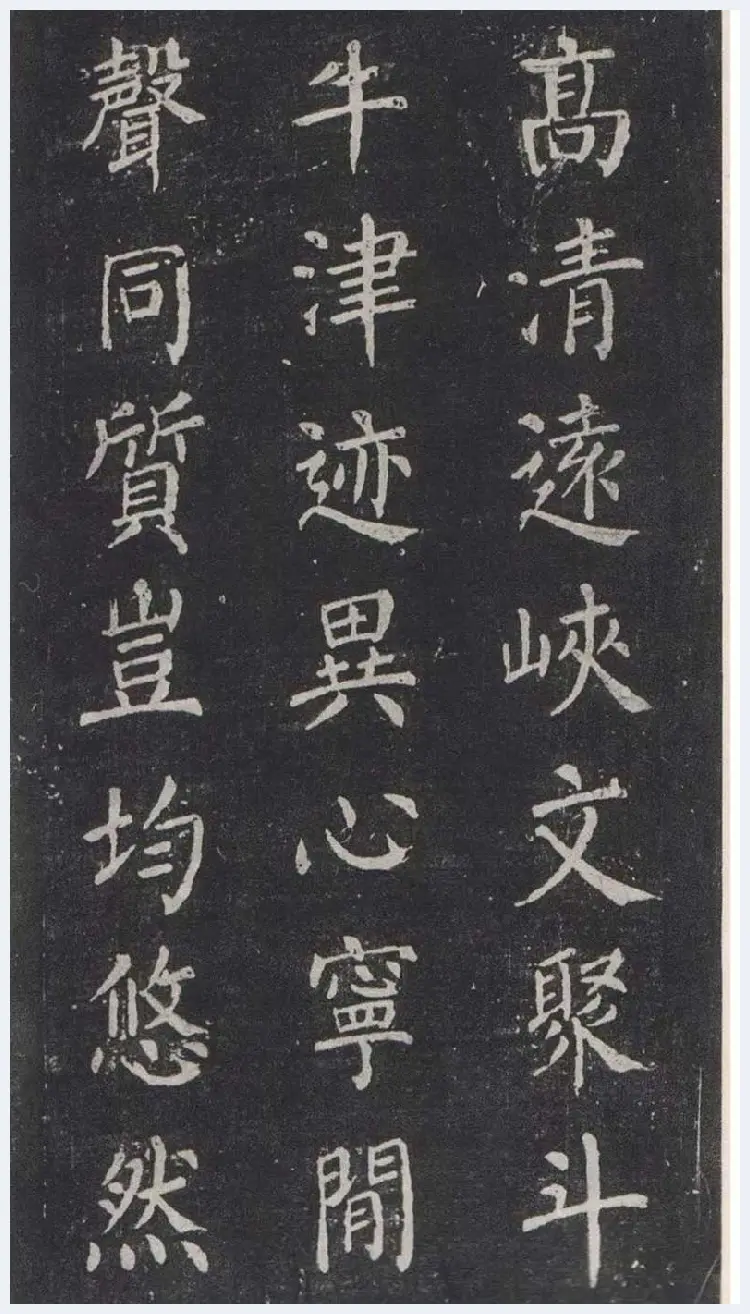 高清遠峽文聚斗
牛津迹異心寧閒
聲同質豈均悠然